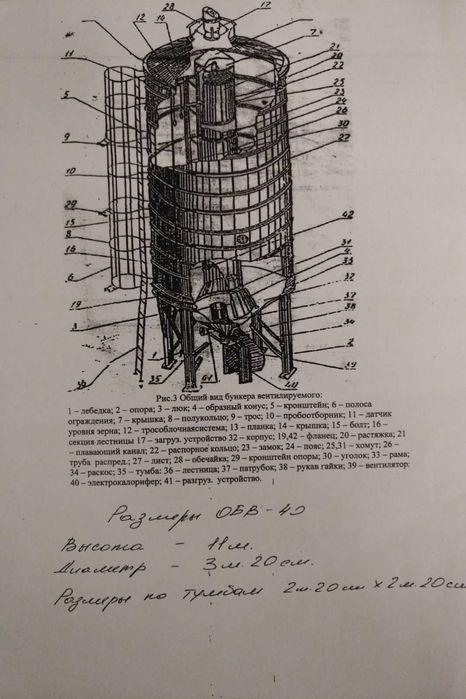 28
17
12
14
7
11
21
20
22
25
23
24
26
5
30
9
27
10
29
42
15
8
31
4
16
33
6
32
19
37
3
38
34
1
2
35
41
40
39
Рис.3 Общий вид бункера вентилируемого:
1 – лебедка; 2 – опора; 3 – люк; 4 – образный конус; 5 – кронштейн; 6 – полоса
ограждения; 7 – крышка; 8 – полукольцо; 9 – трос; 10 – пробоотборник; 11 – датчик
уровня зерна; 12 – трособлочнаясистема; 13 – планка; 14 – крышка; 15 – болт; 16 –
секция лестницы 17 – загруз. устройство 32 – корпус; 19,42 – фланец; 20 – растяжка; 21
– плавающий канал; 22 – распорное кольцо; 23 – замок; 24 – пояс; 25,31 – хомут; 26 –
труба распред.; 27 – лист; 28 – обечайка; 29 – кронштейн опоры; 30 – уголок; 33 – рама;
34 – раскос; 35 – тумба; 36 – лестница; 37 – патрубок; 38 – рукав гайки; 39 – вентилятор:
40 – электрокалорифер; 41 – разгруз. устройство.
Размеры ОБВ-40
Высота – 11 м.
Диаметр – 3 м. 20 см.
Размеры по тумбам 2м.20см x 2м.20см